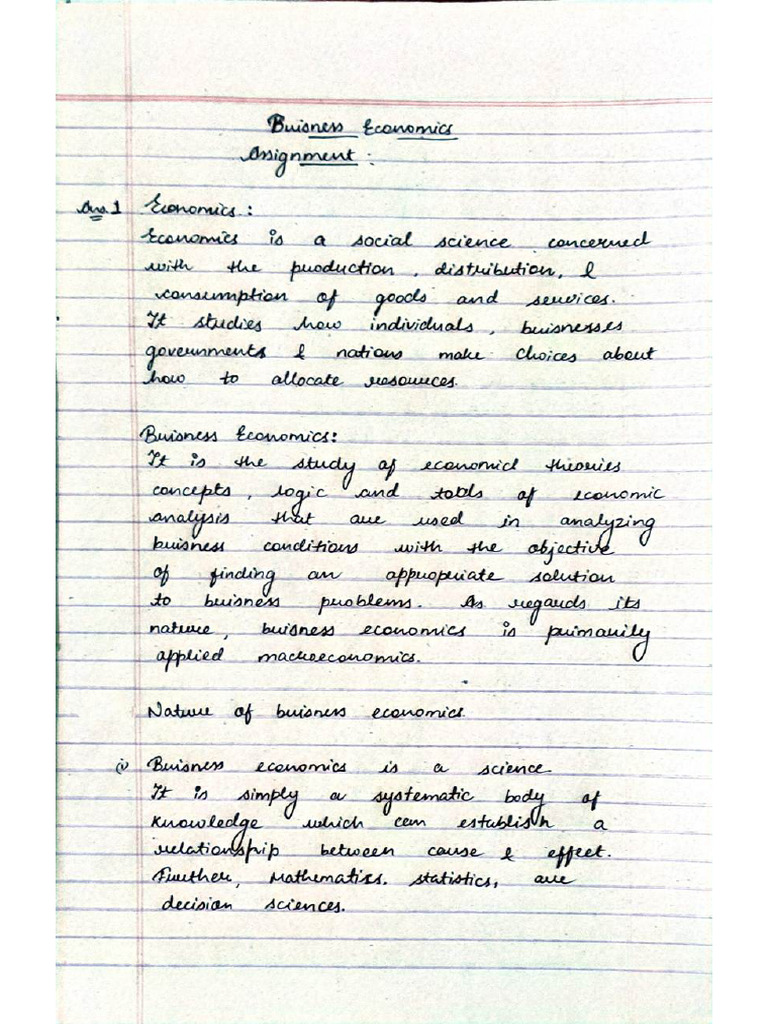 Buisness Economics
Assignment :
Ans 1 Economics :
Economics is a social science concerned
with the production , distribution, &
consumption of goods and services.
It studies how individuals , buisnesses
governments & nations make choices about
how to allocate resources.
Buisness Economics :
It is the study of economicl theories
concepts , logic and tools of economic
analysis that are used in analyzing
buisness conditions with the objective
of finding an appropriate solution
to buisness problems. As regards its
nature, buisness economics is primarily
applied macroeconomics.
Nature of buisness economics.
(i) Buisness economics is a science.
It is simply a systematic body of
knowledge which can establish a
relationship between cause & effect.
Further, Mathematics, statistics, are
decision sciences.